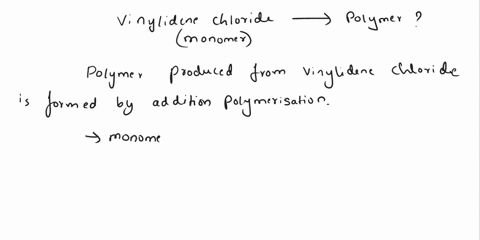 Vinylidene chloride ⟶ Polymer ?
(monomer)
Polymer produced from vinylidene chloride
is formed by addition polymerisation.
→ monome